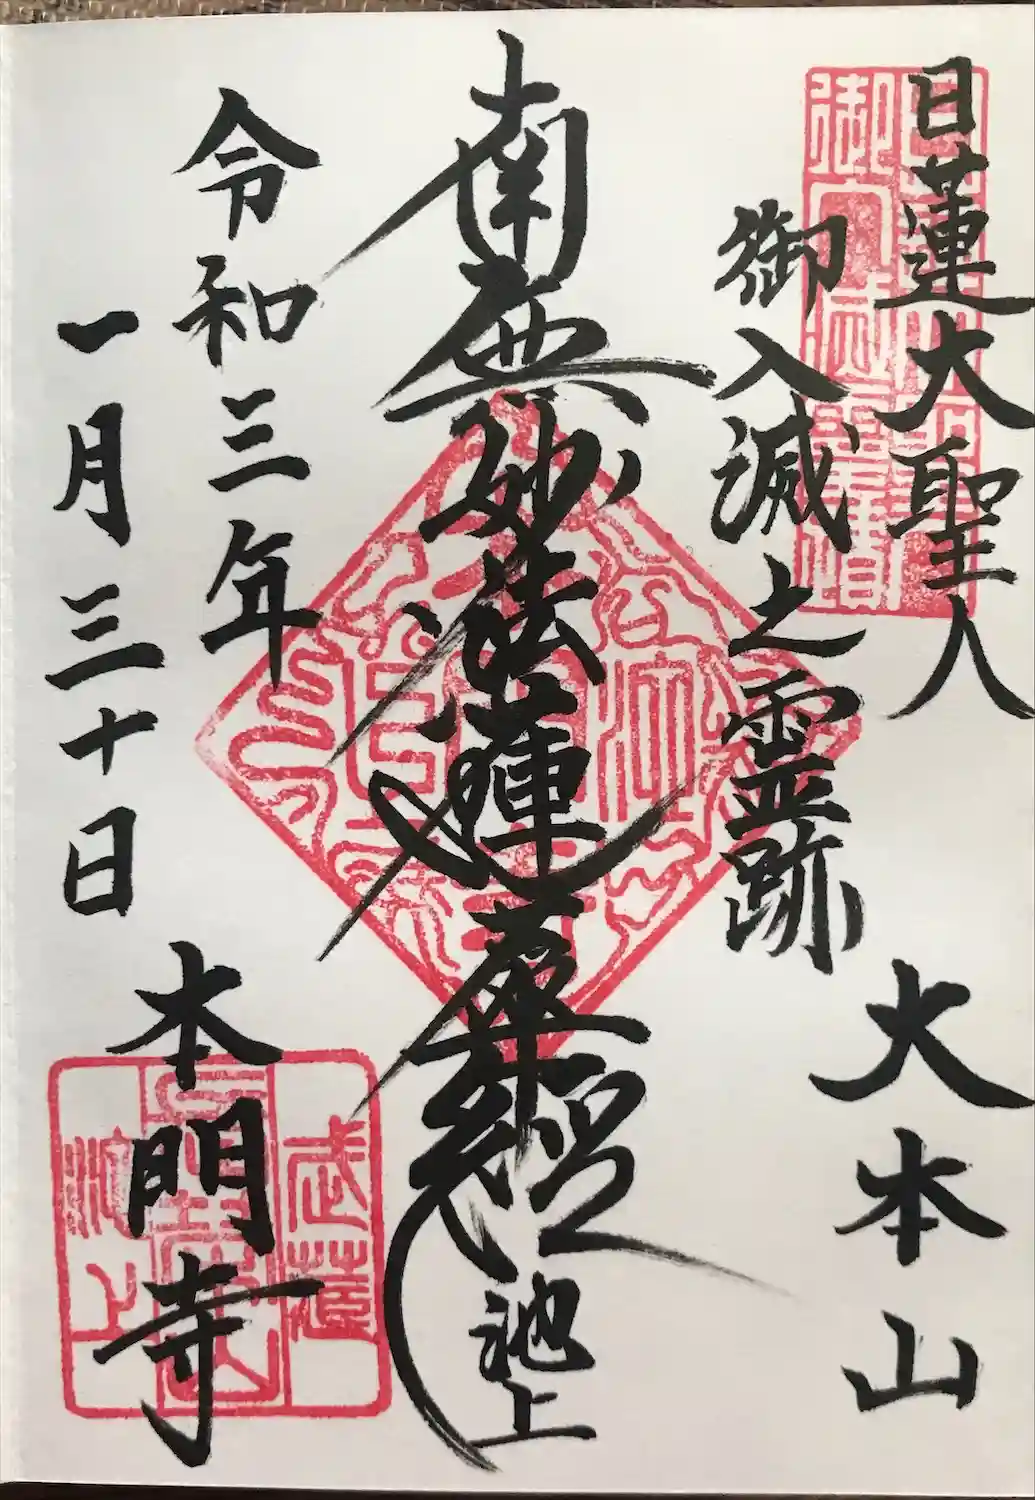 日蓮大聖人
御入滅之霊跡
大本山
南無妙法蓮華経
池上
令和三年
一月三十日
本門寺
武蔵
池上